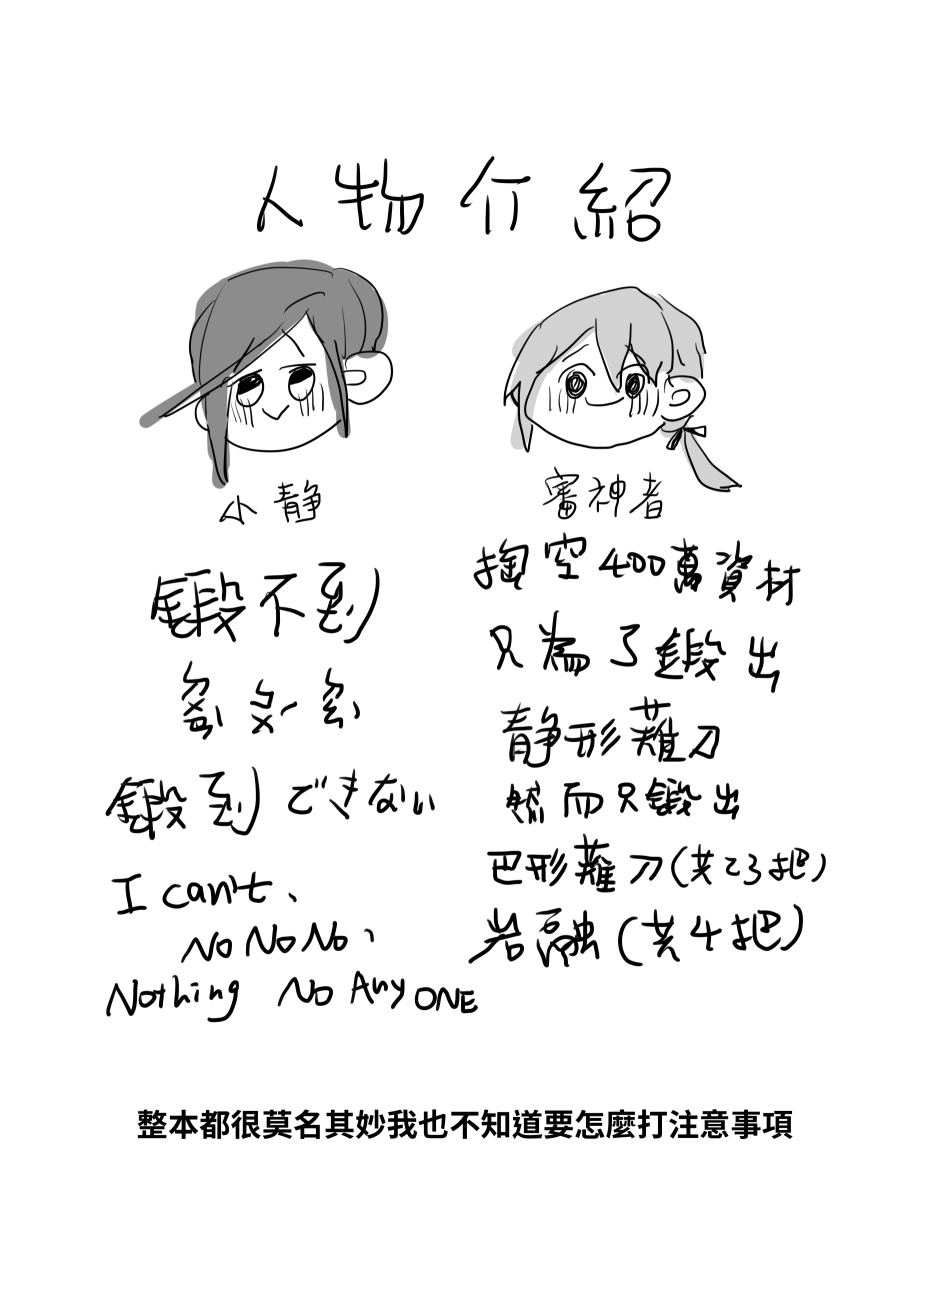 人物介紹
小靜
鍛不到
鍛到できない
I can't、
No No No、
Nothing No Any ONE
審神者
掏空400萬資材
只為了鍛出
静形薙刀
然而只鍛出
巴形薙刀(共23把)
岩融(共4把)
整本都很莫名其妙我也不知道要怎麼打注意事項